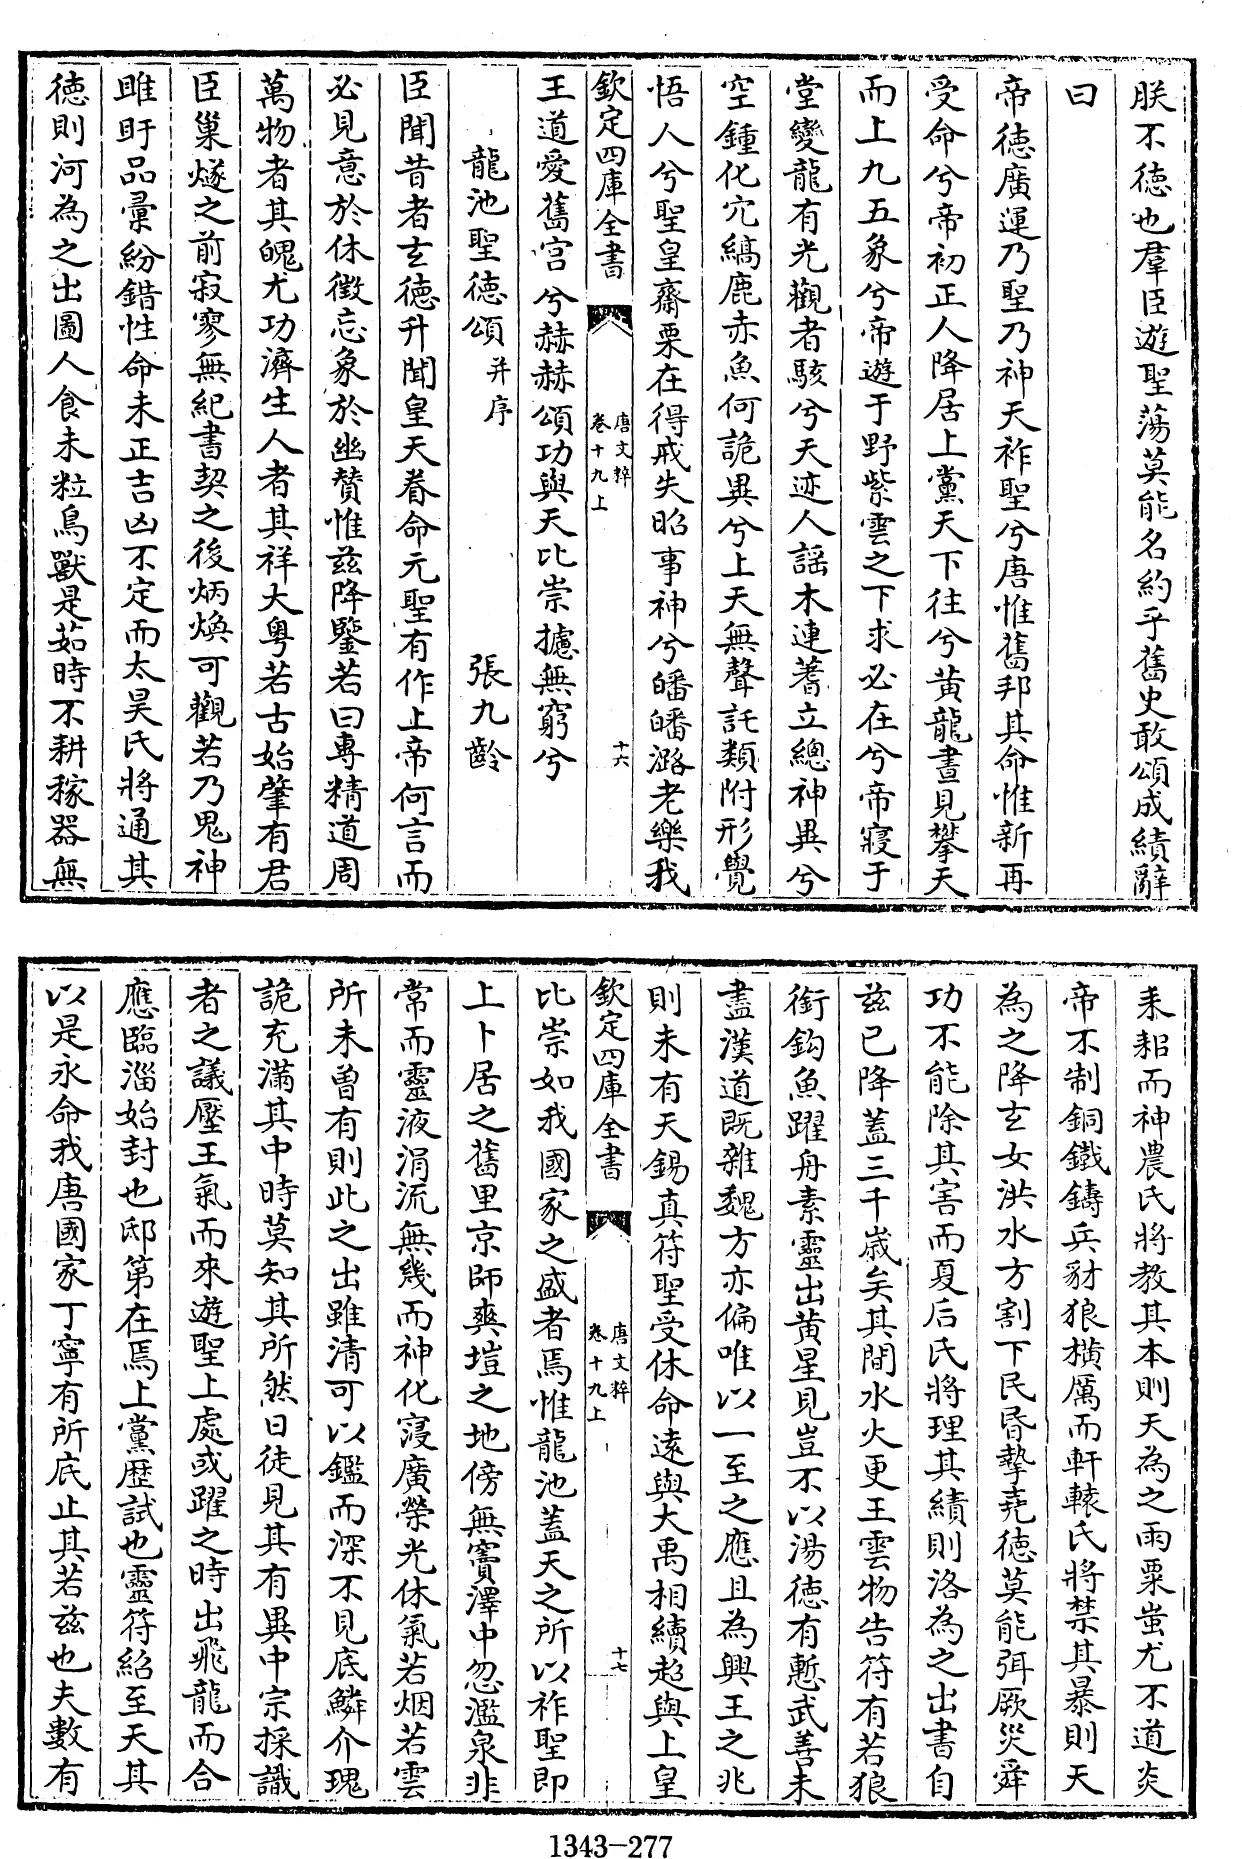 朕不徳也羣臣遊聖蕩莫能名約乎舊史敢頌成績辭
曰
帝徳廣運乃聖乃神天祚聖兮唐惟舊邦其命惟新再
受命兮帝初正人降居上黨天下往兮黄龍晝見攀天
而上九五象兮帝遊于野紫雲之下求必在兮帝寢于
堂變龍有光觀者駭兮天迹人謡木連蓍立總神異兮
空鍾化穴縞鹿赤魚何詭異兮上天無聲託類附形覺
悟人兮聖皇齋栗在得戒失昭事神兮皤皤潞老樂我
欽定四庫全書
唐文粹
卷十九上
十六
王道愛舊宫兮赫赫頌功與天比崇攄無窮兮
龍池聖徳頌并序
張九齡
臣聞昔者玄徳升聞皇天眷命元聖有作上帝何言而
必見意於休徴忘象於幽贊惟兹降鑒若曰專精道周
萬物者其魄尤功濟生人者其祥大粤若古始肇有君
臣巢燧之前寂寥無紀書契之後炳煥可觀若乃鬼神
睢盱品彚紛錯性命未正吉凶不定而太昊氏將通其
徳則河為之出圖人食未粒鳥獸是茹時不耕稼器無
耒耜而神農氏將教其本則天為之雨粟蚩尤不道炎
帝不制銅鐵鑄兵豺狼横厲而軒轅氏將禁其暴則天
為之降玄女洪水方割下民昏墊堯徳莫能弭厥災舜
功不能除其害而夏后氏將理其績則洛為之出書自
兹已降蓋三千歳矣其間水火更王雲物告符有若狼
銜鈎魚躍舟素靈出黄星見豈不以湯徳有慙武善未
盡漢道既雜魏方亦偏唯以一至之應且為興王之兆
則未有天錫真符聖受休命遠與大禹相續超與上皇
欽定四庫全書
唐文粹
卷十九上
十七
比崇如我國家之盛者焉惟龍池蓋天之所以祚聖即
上卜居之舊里京師爽塏之地傍無竇澤中忽濫泉非
常而靈液涓流無幾而神化寖廣榮光休氣若烟若雲
所未曽有則此之出雖清可以鑑而深不見底鱗介瑰
詭充滿其中時莫知其所然日徒見其有異中宗採識
者之議壓王氣而來遊聖上處或躍之時出飛龍而合
應臨淄始封也邸第在焉上黨歴試也靈符紹至天其
以是永命我唐國家丁寧有所底止其若兹也夫數有
1343-277